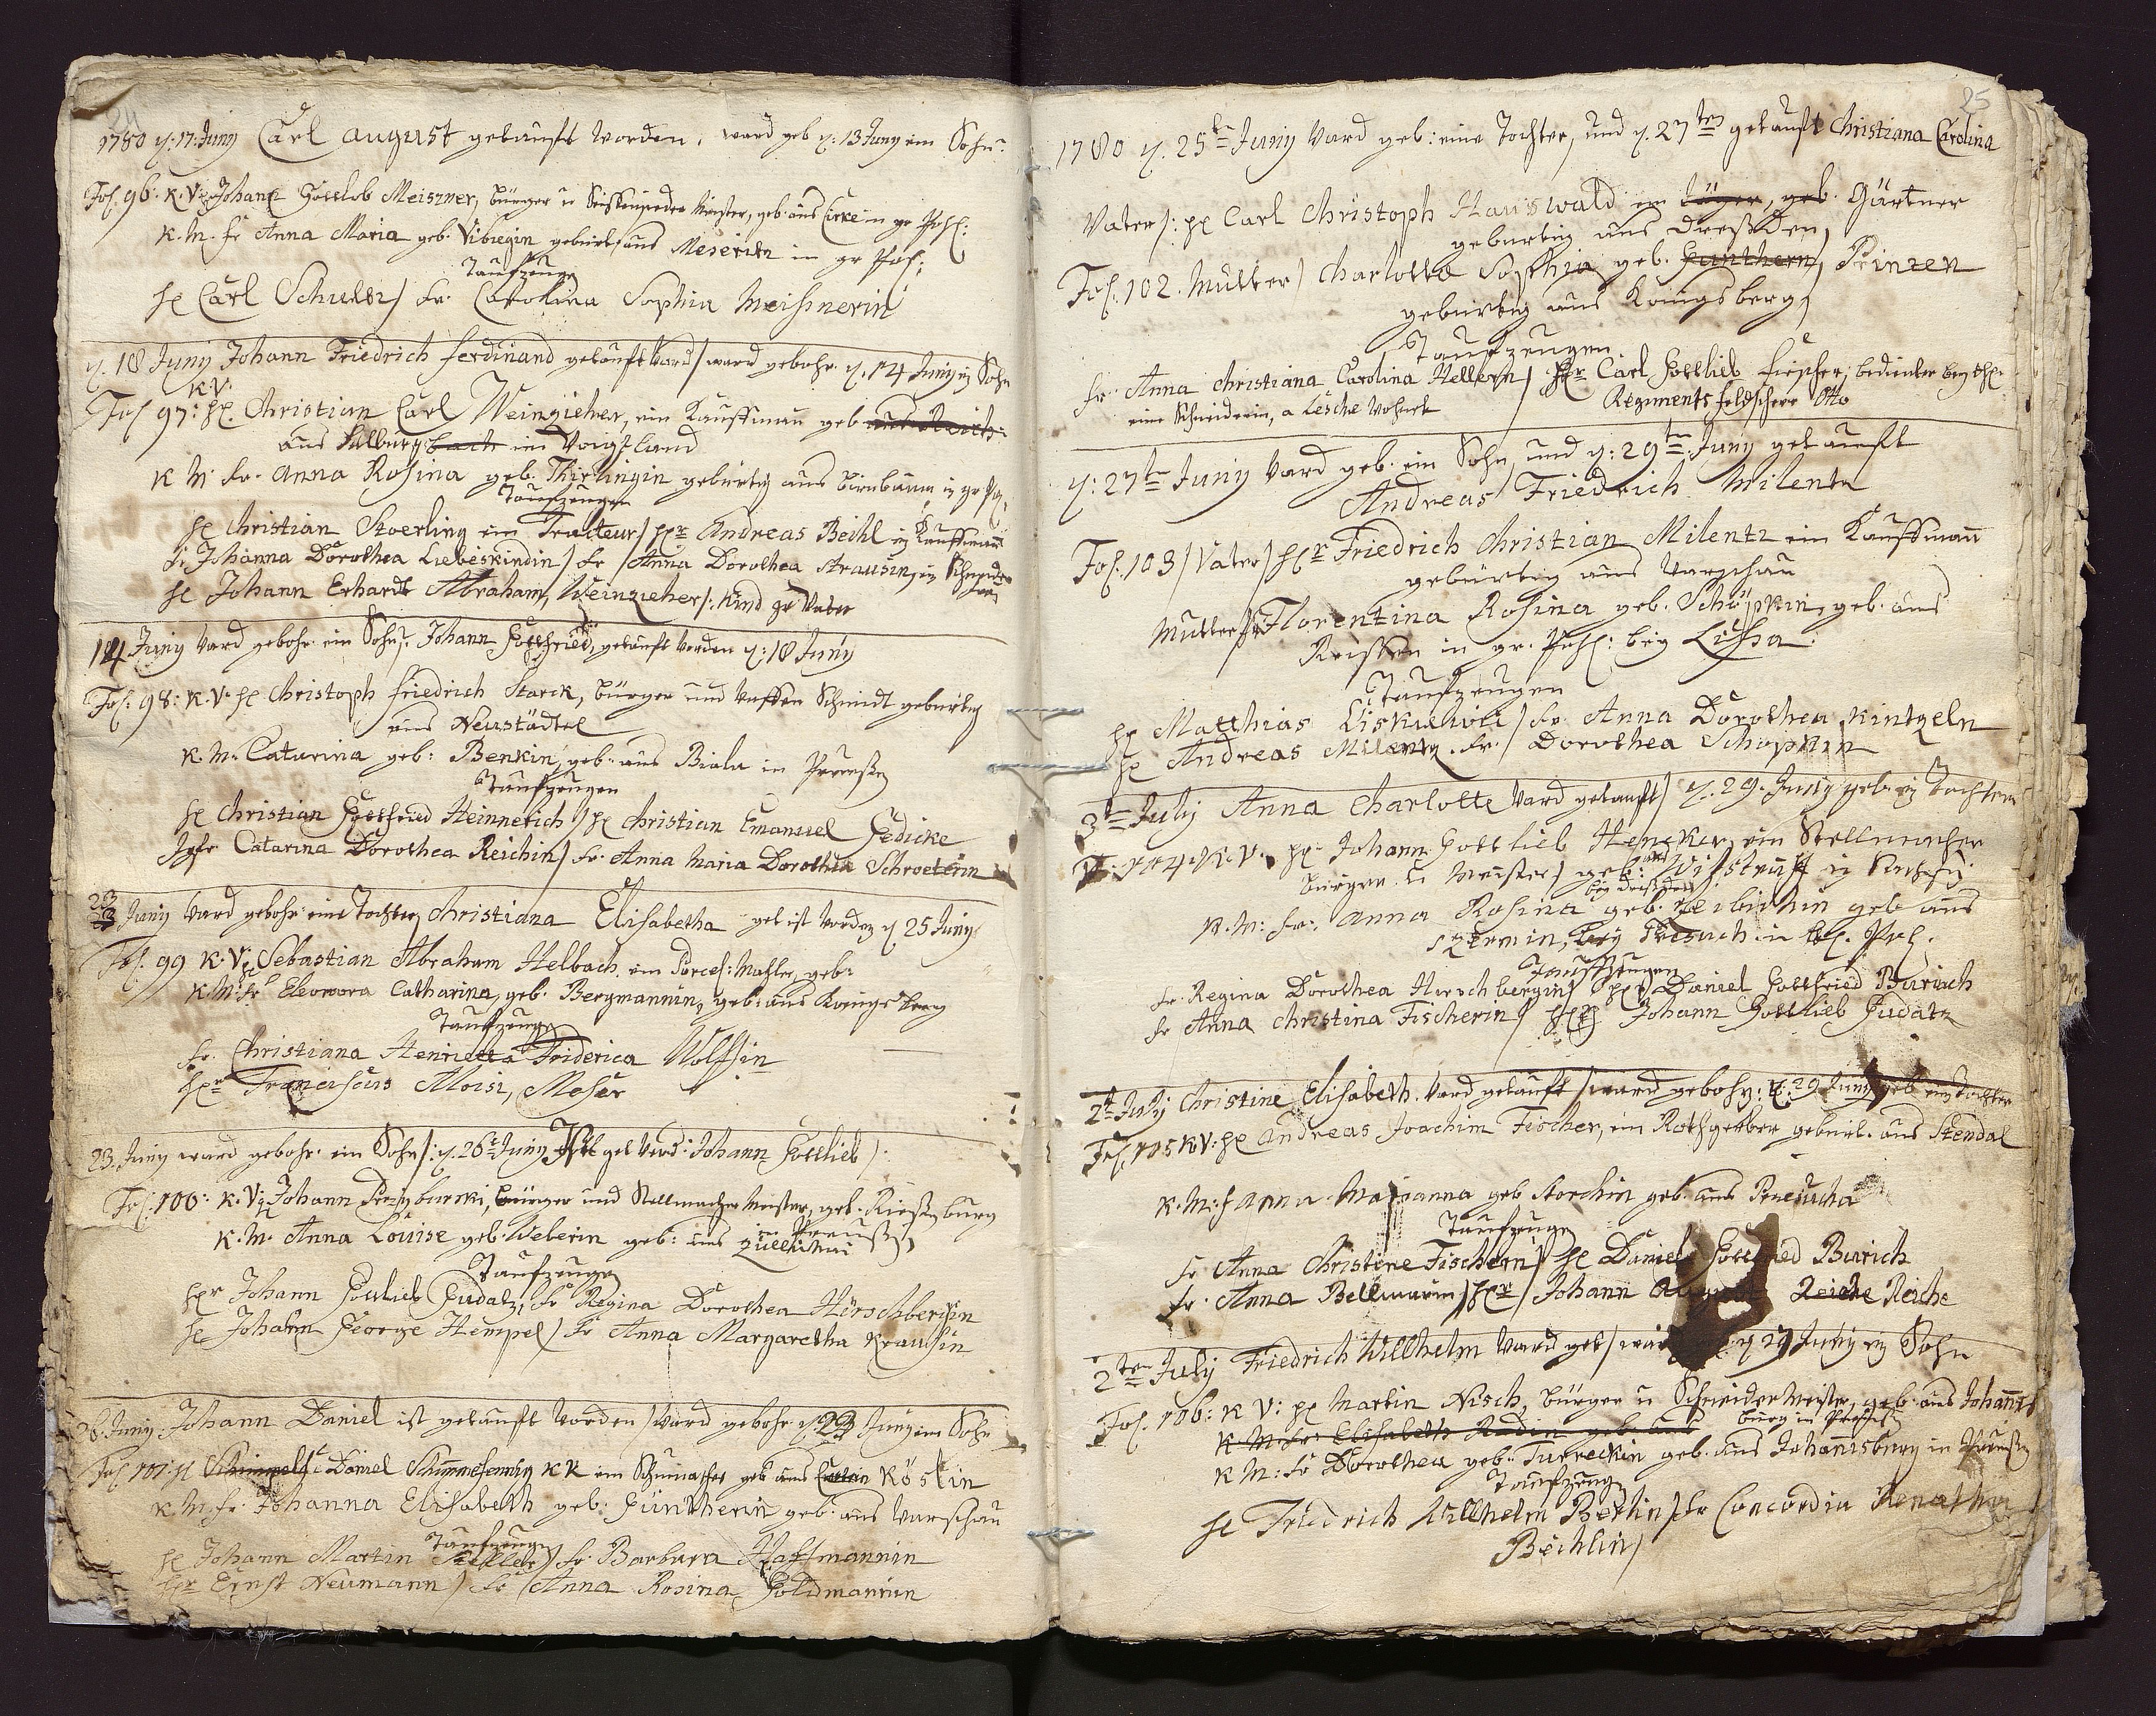 24
1780 d. 17. Juny Carl August getauft worden, ward geb d: 13 Juny ein Sohn
Fol. 96. K.V. Johann Gottlob Meiszner, bürger u Seiffensieder Meister, geb. aus Cirke in gr Pohl:
K.M. fr Anna Maria geb. Vibiegin gebürt aus Meseritz in gr Pohl:
Taufzeuge
H Carl Schultz / Fr. Carolina Sophia Meißnerin
d. 18 Juny Johann Friedrich ferdinand getauft ward / ward gebohr. d. 14 Juny ein Sohn
K.V.
Fol 97: H. Christian Carl Weinzieher, ein Kauffmann geb
aus Salburg im Voigtland
K M fr. Anna Rosina geb. Thirlingin gebürtig aus Birnbaum in gr Pohl
Taufzeugen
H Christian Stoerling ein Tracteur / Hr Andreas Beihl ein Kauffmann
Fr Johanna Dorothea Liebeskindin / Fr Anna Dorothea Strausin, ein Schneider
H Johann Erhardt Abraham, Weinzieher /: Kind gr Vater
14 Juny ward gebohr ein Sohn. Johann Gottfried, getauft worden d: 18 Juny
Fol. 98: K.V. H Christoph friedrich Starck, bürger und Waffen Schmidt gebürtig
aus Neustädtel
K.M. Catarina geb: Benkin, geb: aus Biala in Preußen
Taufzeugen
H Christian Gottfried Heinnerich / H Christian Emanuel Gedicke
Jgfr Catarina Dorothea Reichin / Fr. Anna Maria Dorothea Schroeterin
23
23 Juny ward gebohr eine Tochter, Christiana Elisabetha get ist worden d. 25 Juny
Fol. 99 K.V. H Sebastian Abraham Helbach, ein Porcel: Mahler, geb:
K M: fr Eleonora Catharina, geb. Bergmannin, geb: aus Koenigs berg
Taufzeuge
Fr. Christiana Henrietta Friderica Wolffin
Hr Franciscus Aloisi, Moser
23. Juny ward gebohr. ein Sohn /: d. 26t Juny ist get word: Johann Gottlieb /:
Fol. 100: K.V. H Johann Przyburski, bürger und Stellmacher Meister, geb. Riesenburg
in Preußen
K.M. Anna Louise geb. Weberin geb: aus Züllichau
Taufzeuge
Hr Johann Gottlieb Gudatz, Fr Regina Dorothea Hirschbergin
H Johann George Hempel / Fr Anna Margaretha Krausin
26. Juny Johann Daniel ist getauft worden / ward gebohr d. 23 Juny ein Sohn
Fol 101. H Schimmelf Daniel Schimmefennig KK ein Schumacher geb aus Köslin
K.M. fr. Johanna Elisabeth geb: Güntherin geb: aus Warschau
Taufzeuge
H Johann Martin / Fr. Barbara Haffmannin
Hr Ernst Neumann / Fr Anna Rosina Goldmannin
25
1780 d. 25t Juny ward geb: eine Tochter, und d. 27ten getauft Christiana Carolina
Vater /: H Carl Christoph Hauswald ein Jäger, geb. Gärtner
gebürtig aus Dreßden,
Fol. 102. Mutter / Charlotta Sophia geb. Günthern, Prinzen
gebürtig aus Königsberg,
Taufzeugen
Fr. Anna Christiana Carolina Hellern / Hr Carl Gottlieb Fiescher, bedienter bey
eine Schneiderin, a Lesche wohnet Regiments feldscherr Otto
d: 27tn Juny ward geb. ein Sohn und d: 29tn Juny getauft
Andreas Friedrich Milentz
Fol. 103 / Vater / Hr Friedrich Christian Milentz ein Kauffmann
gebürtig aus Warschau
Mutter / Fr Florentina Rosina geb. Schöpkin, geb. aus
Reissen in gr. Pohl: bey Lissa.
Taufzeugen
H Matthias Liskiewitz / Fr Anna Dorothea Kintzeln
H Andreas Milentz. Fr. / Dorothea Schöpkin
3tn July Anna Charlotte ward getauft / d. 29. Juny geb. ein Tochter
104 K.V. H Johann Gottlieb Hencker, ein Stellmacher
bürger u Meister / geb: aus Wilstruff in Sachsen
bey Dreßden
K.M: fr. Anna Rosina geb. geb aus
in Pohl.
Taufzeugen
Fr. Regina Dorothea Hirschbergin / Hr Daniel Gottfried Burich
Fr Anna Christina Fischerin / Hr Johann Gottlieb Gudatz
2t July Christine Elisabeth. ward getauft / ward gebohr: d: 29 Juny geb ein Tochter
Fol. 105 K.V: H Andreas Joachim Fischer, ein Rothgerber gebürt. aus Stendal
K.M: f Anna Marianna geb Storchin geb. aus
Taufzeuge
Fr Anna Christine Fischern / H Daniel Gottfried Burich
Fr. Anna Bellmarin / Hr / Johann August Reiche Reiche
2ten July Friedrich Willhelm ward get / war d 29 Juny ein Sohn
Fol. 106: K V: H Martin Nisch, bürger u Schneider Meister, geb. aus Johannis
burg in Preußen
K M. fr: Elisabeth Radin geb. aus
K M: Fr Dorothea geb. Turreckin geb. aus Johannisburg in Preußen
Taufzeuge
H Friedrich Willhelm Berlin / Fr Concordia Renatha
Beihlin /